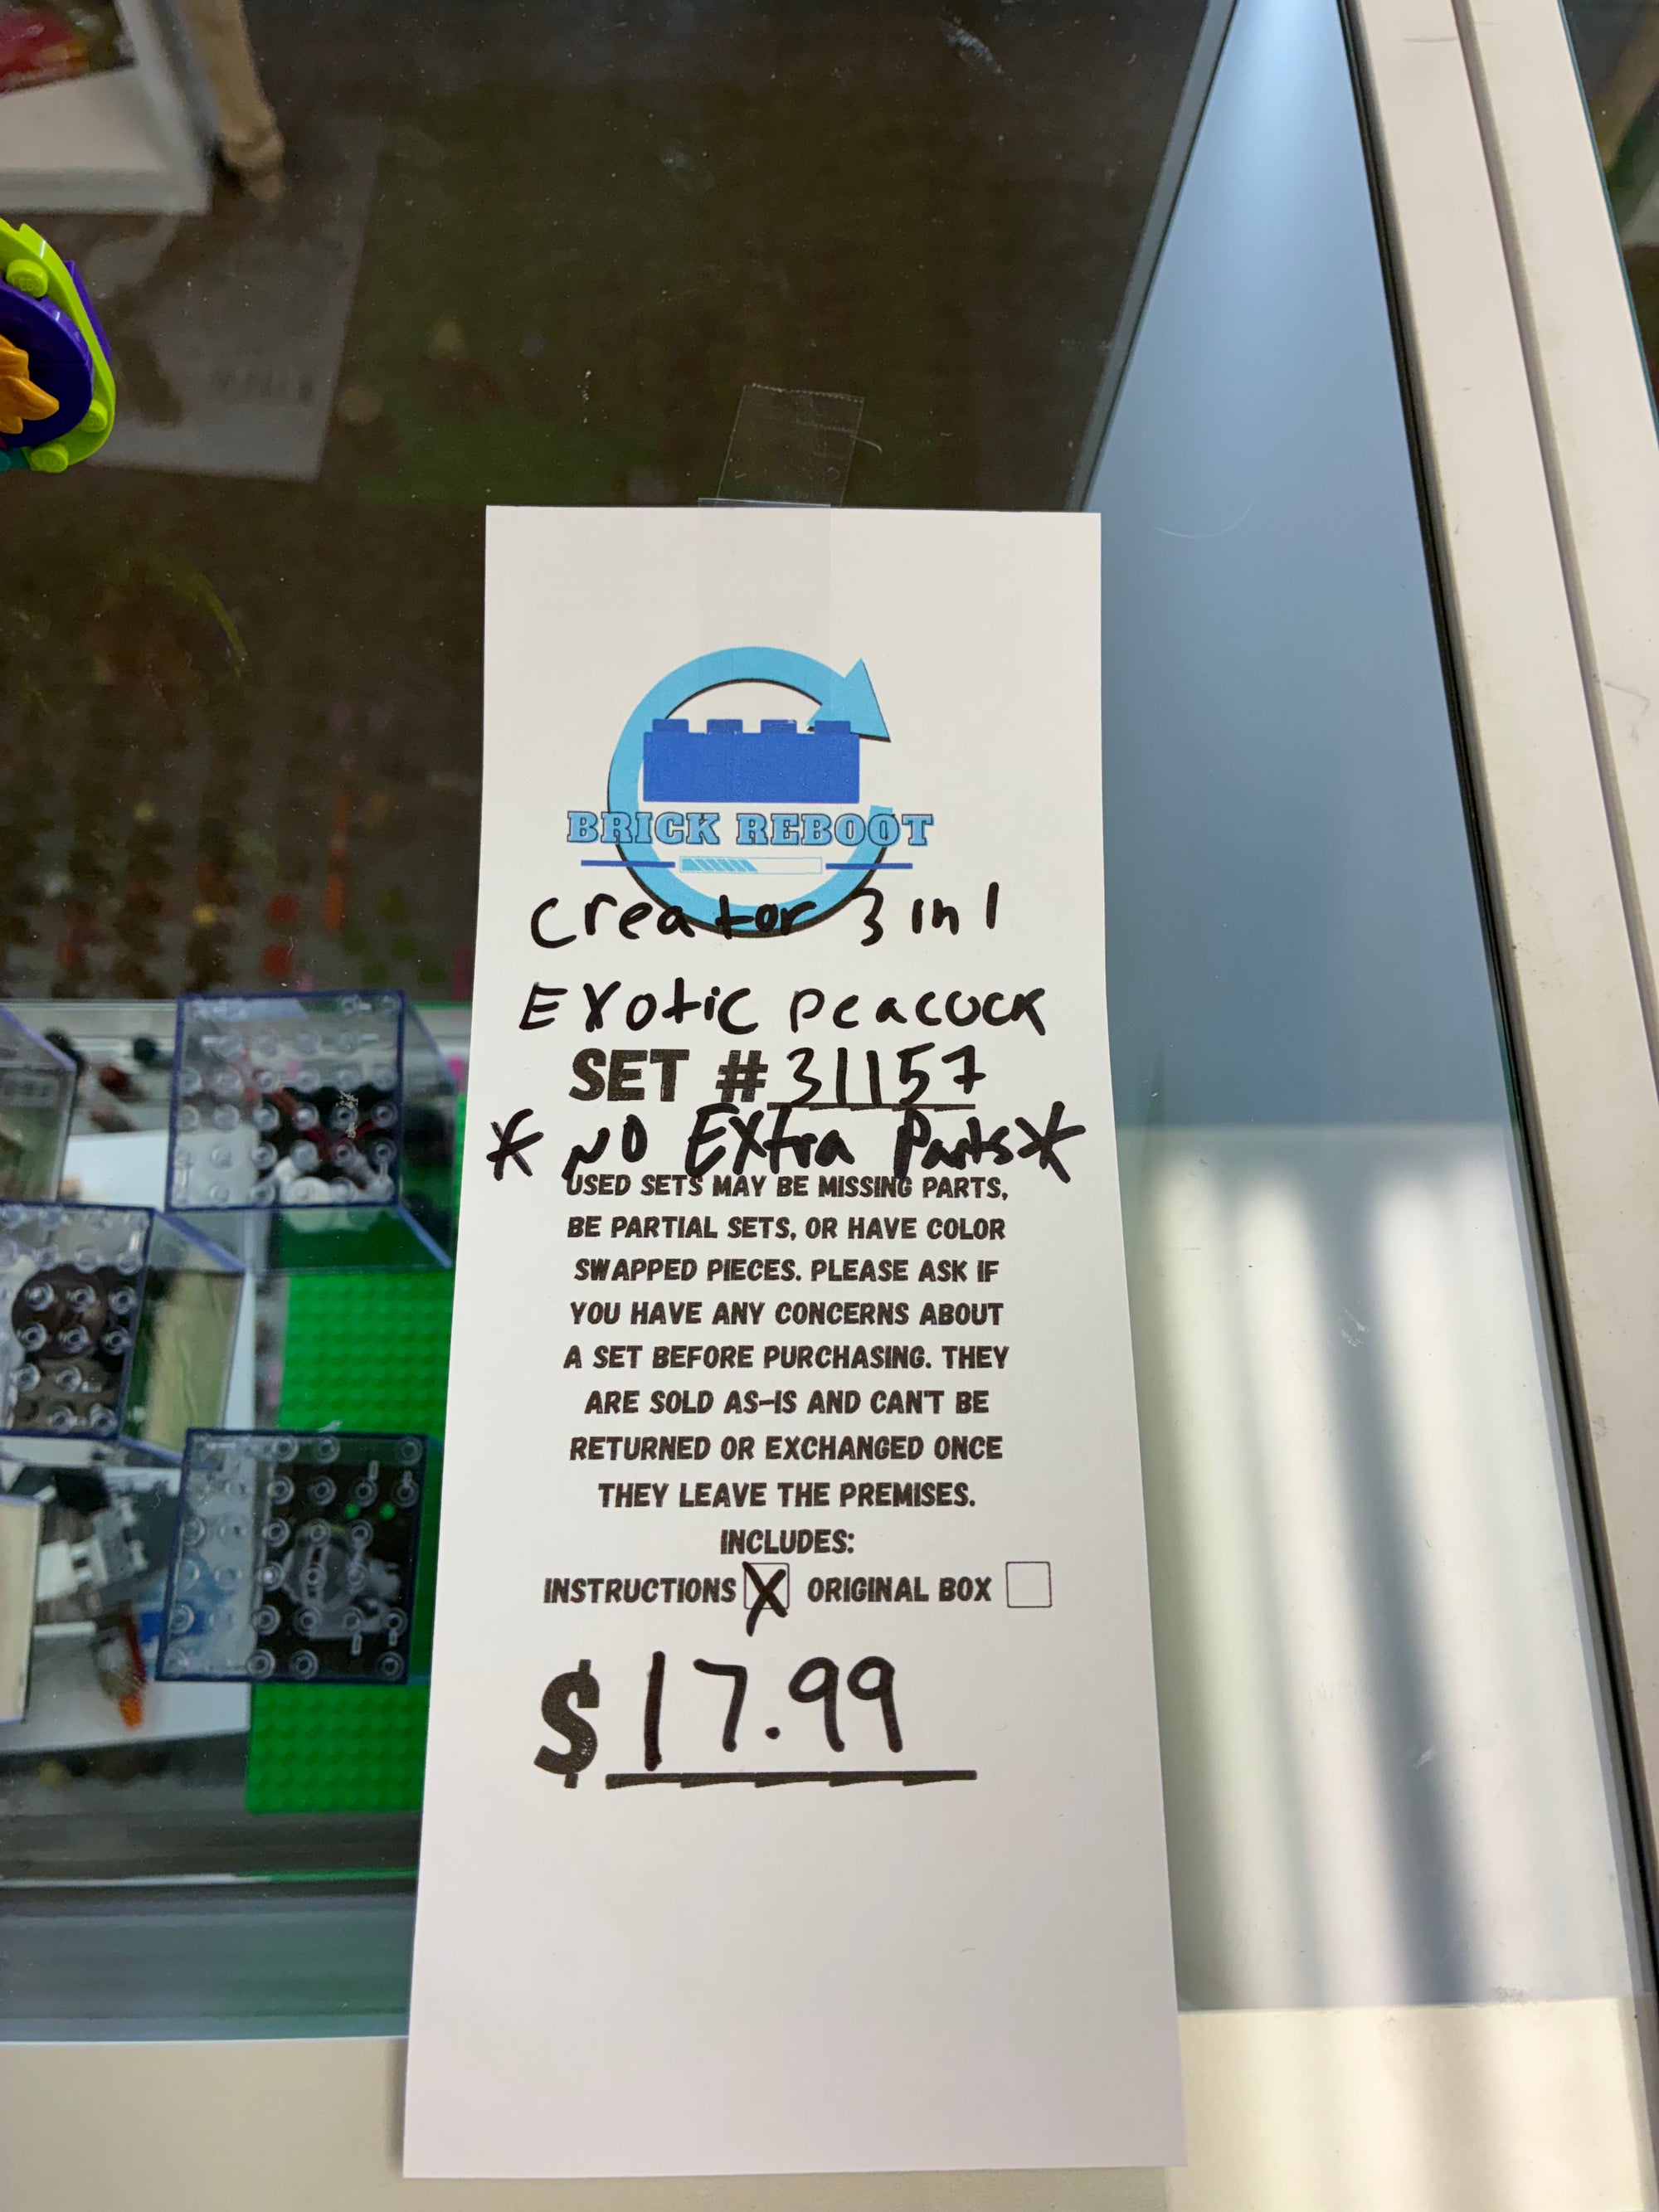 BRICK REBOOT
Creator 3 in 1
Exotic Peacock
SET # 31157
* NO Extra Parts *
USED SETS MAY BE MISSING PARTS,
BE PARTIAL SETS, OR HAVE COLOR
SWAPPED PIECES. PLEASE ASK IF
YOU HAVE ANY CONCERNS ABOUT
A SET BEFORE PURCHASING. THEY
ARE SOLD AS-IS AND CAN'T BE
RETURNED OR EXCHANGED ONCE
THEY LEAVE THE PREMISES.
INCLUDES:
INSTRUCTIONS X ORIGINAL BOX
$17.99